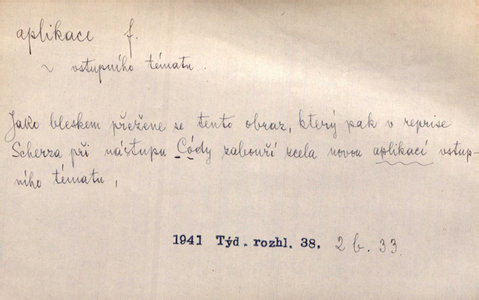 aplikace f.
~ vstupního tématu.
Jako bleskem přežene se tento obraz, který pak v reprise
Scherza při nástupu Códy zabouří zcela novou aplikací vstup-
ního tématu,
1941 Týd. rozhl. 38. 2 b. 33